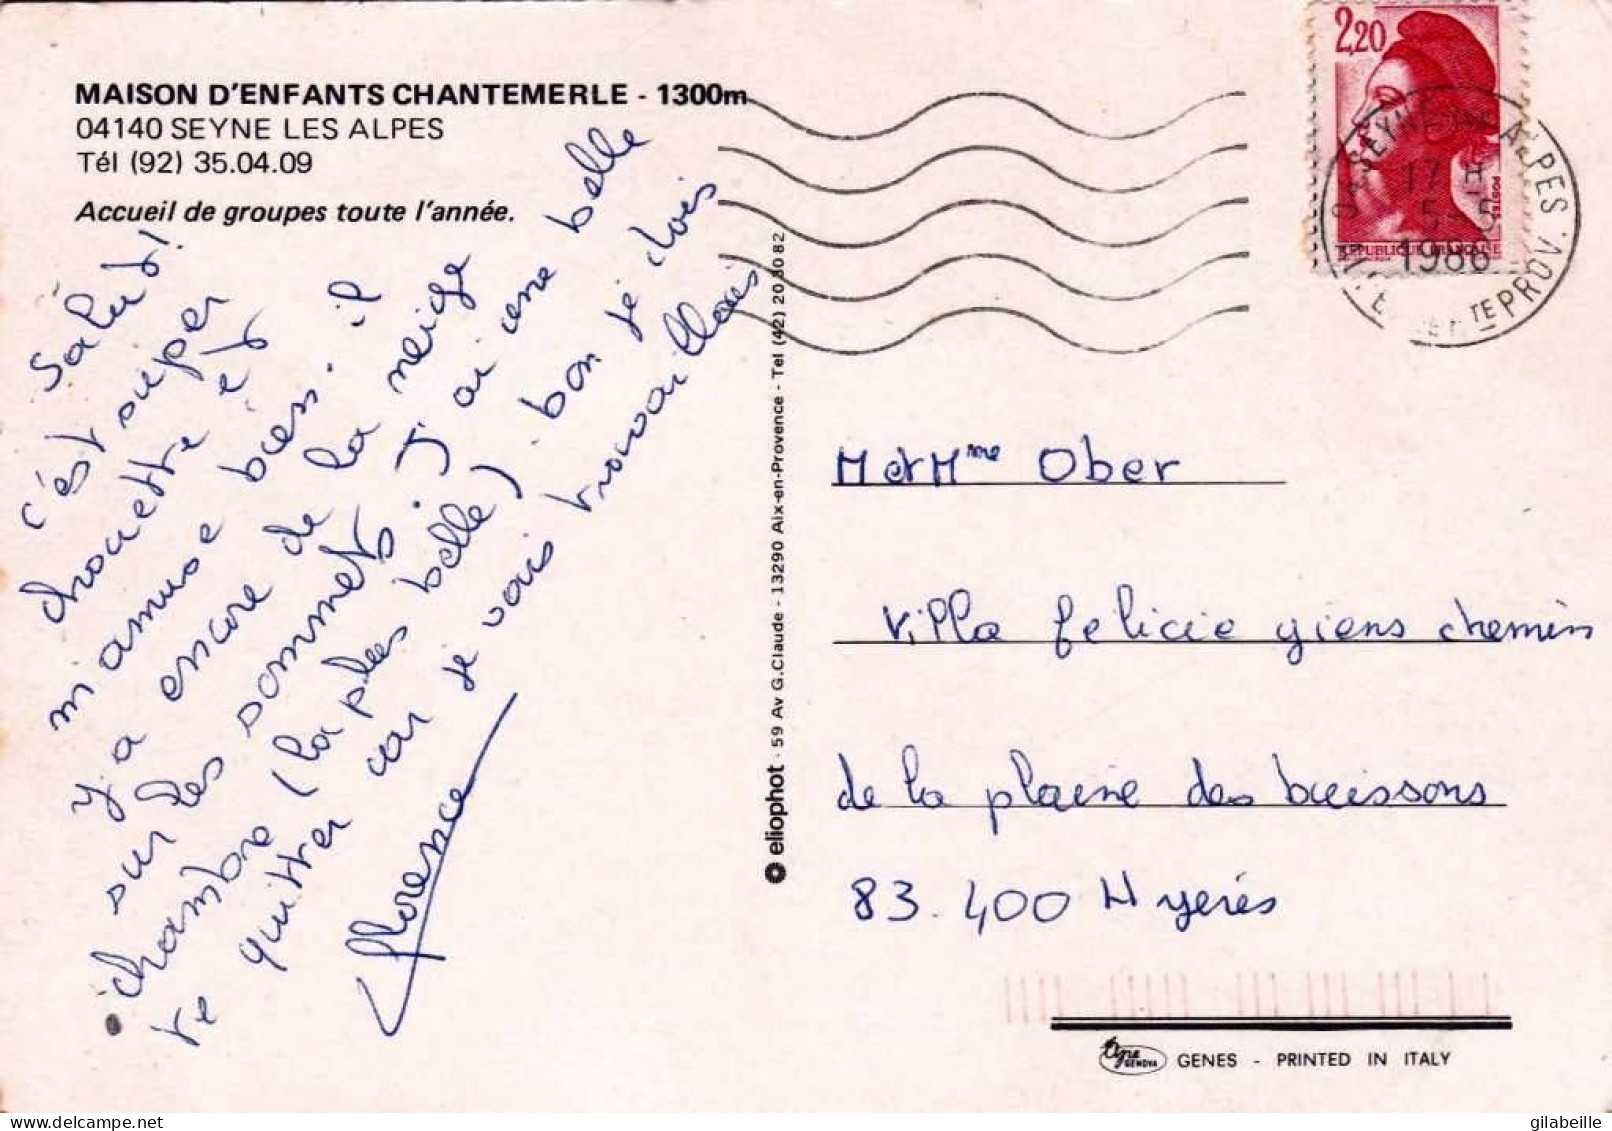 MAISON D'ENFANTS CHANTEMERLE - 1300m
04140 SEYNE LES ALPES
Tél (92) 35.04.09
Accueil de groupes toute l'année.
Salut!
c'est super
chouette et
m'amuse bien. il
y a encore de la neige
sur les sommets. J'ai une belle
chambre (la plus belle). bon je dois
te quitter car je vais travaillais
Florence
eliophot - 59 Av G.Claude - 13290 Aix-en-Provence - Tel (42) 20 80 82
2,20
POSTES
REPUBLIQUE FRANÇAISE
17 H
5 - 5
1986
PROV.
M et Mme Ober
Villa felicie giens chemin
de la plaine des buissons
83.400 Hyerés
GENOVA
GENES - PRINTED IN ITALY
delcampe.net
gilabeille